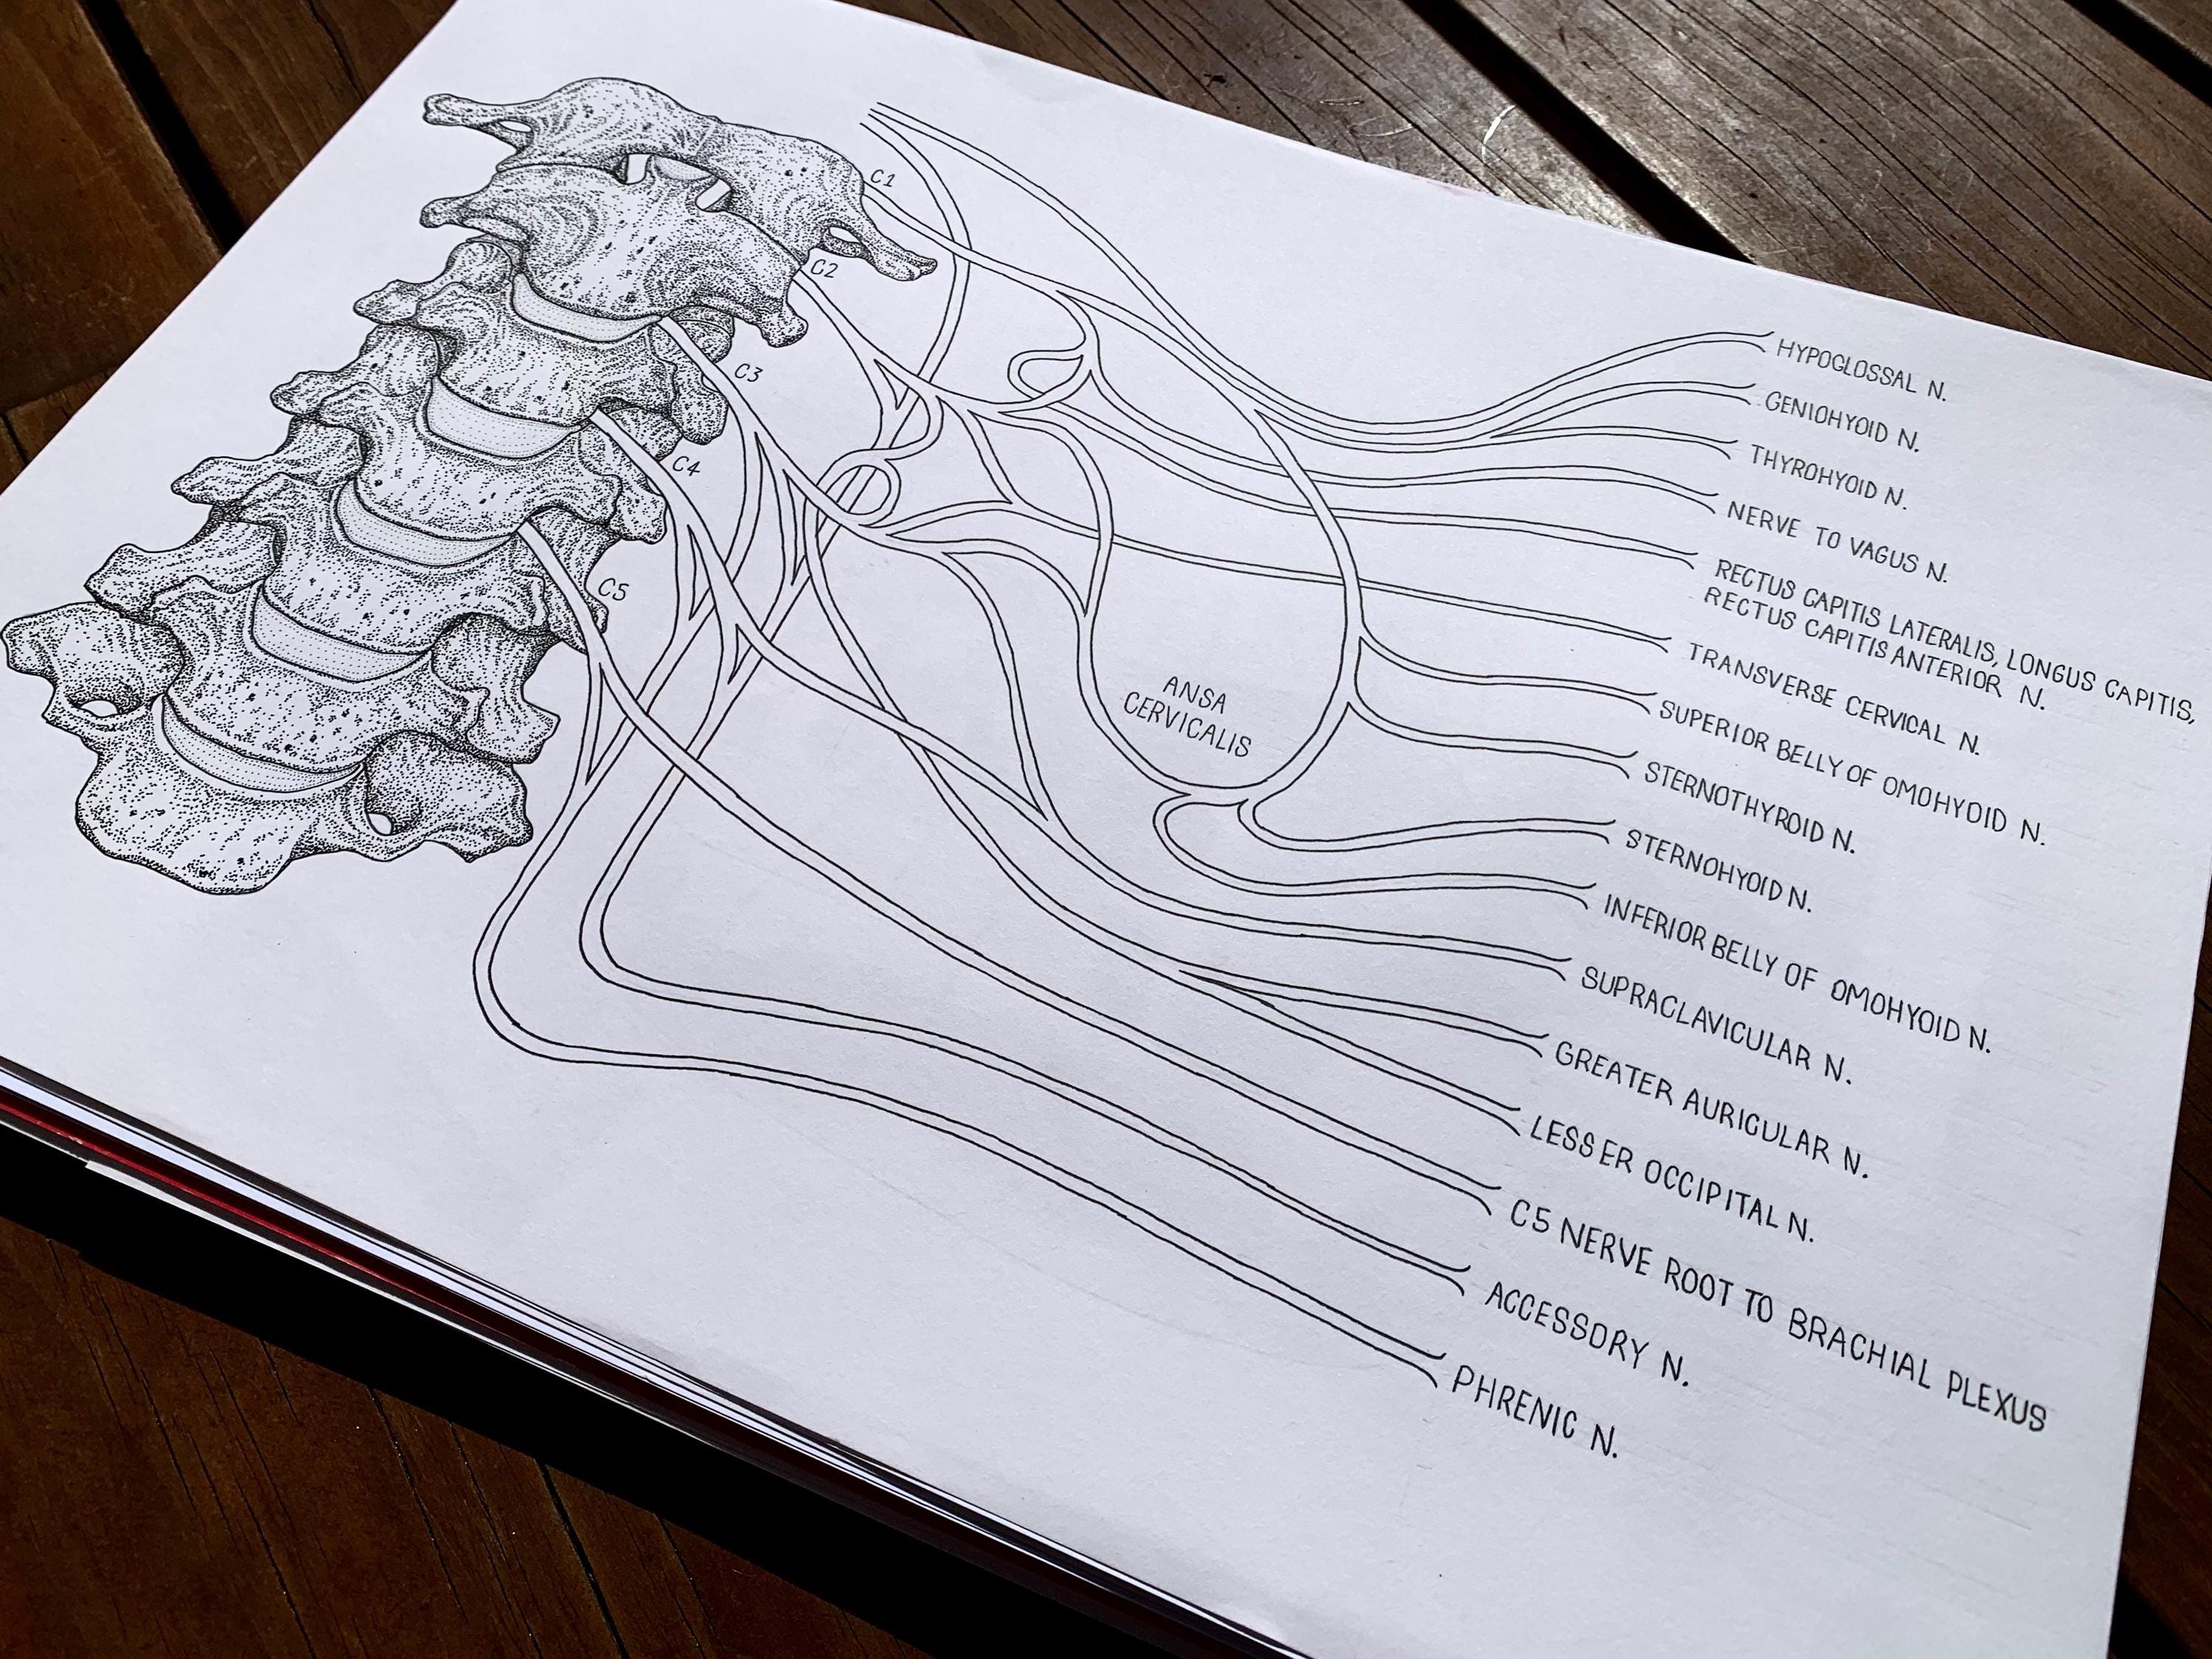 C1
C2
C3
C4
C5
ANSA
CERVICALIS
HYPOGLOSSAL N.
GENIOHYOID N.
THYROHYOID N.
NERVE TO VAGUS N.
RECTUS CAPITIS LATERALIS, LONGUS CAPITIS,
RECTUS CAPITIS ANTERIOR N.
TRANSVERSE CERVICAL N.
SUPERIOR BELLY OF OMOHYOID N.
STERNOTHYROID N.
STERNOHYOID N.
INFERIOR BELLY OF OMOHYOID N.
SUPRACLAVICULAR N.
GREATER AURICULAR N.
LESSER OCCIPITAL N.
C5 NERVE ROOT TO BRACHIAL PLEXUS
ACCESSORY N.
PHRENIC N.